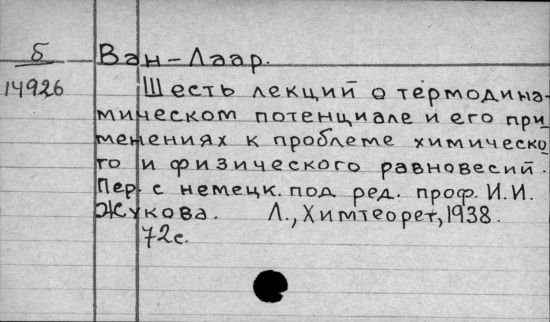 б
14926
Ван-Лаар.
Шесть лекций о термодина-
мическом потенциале и его при
менениях к проблеме химическо
го и физического равновесий.
Пер. с немецк. под ред. проф. И.И.
Жукова. Л., Химтеорет, 1938.
72с.